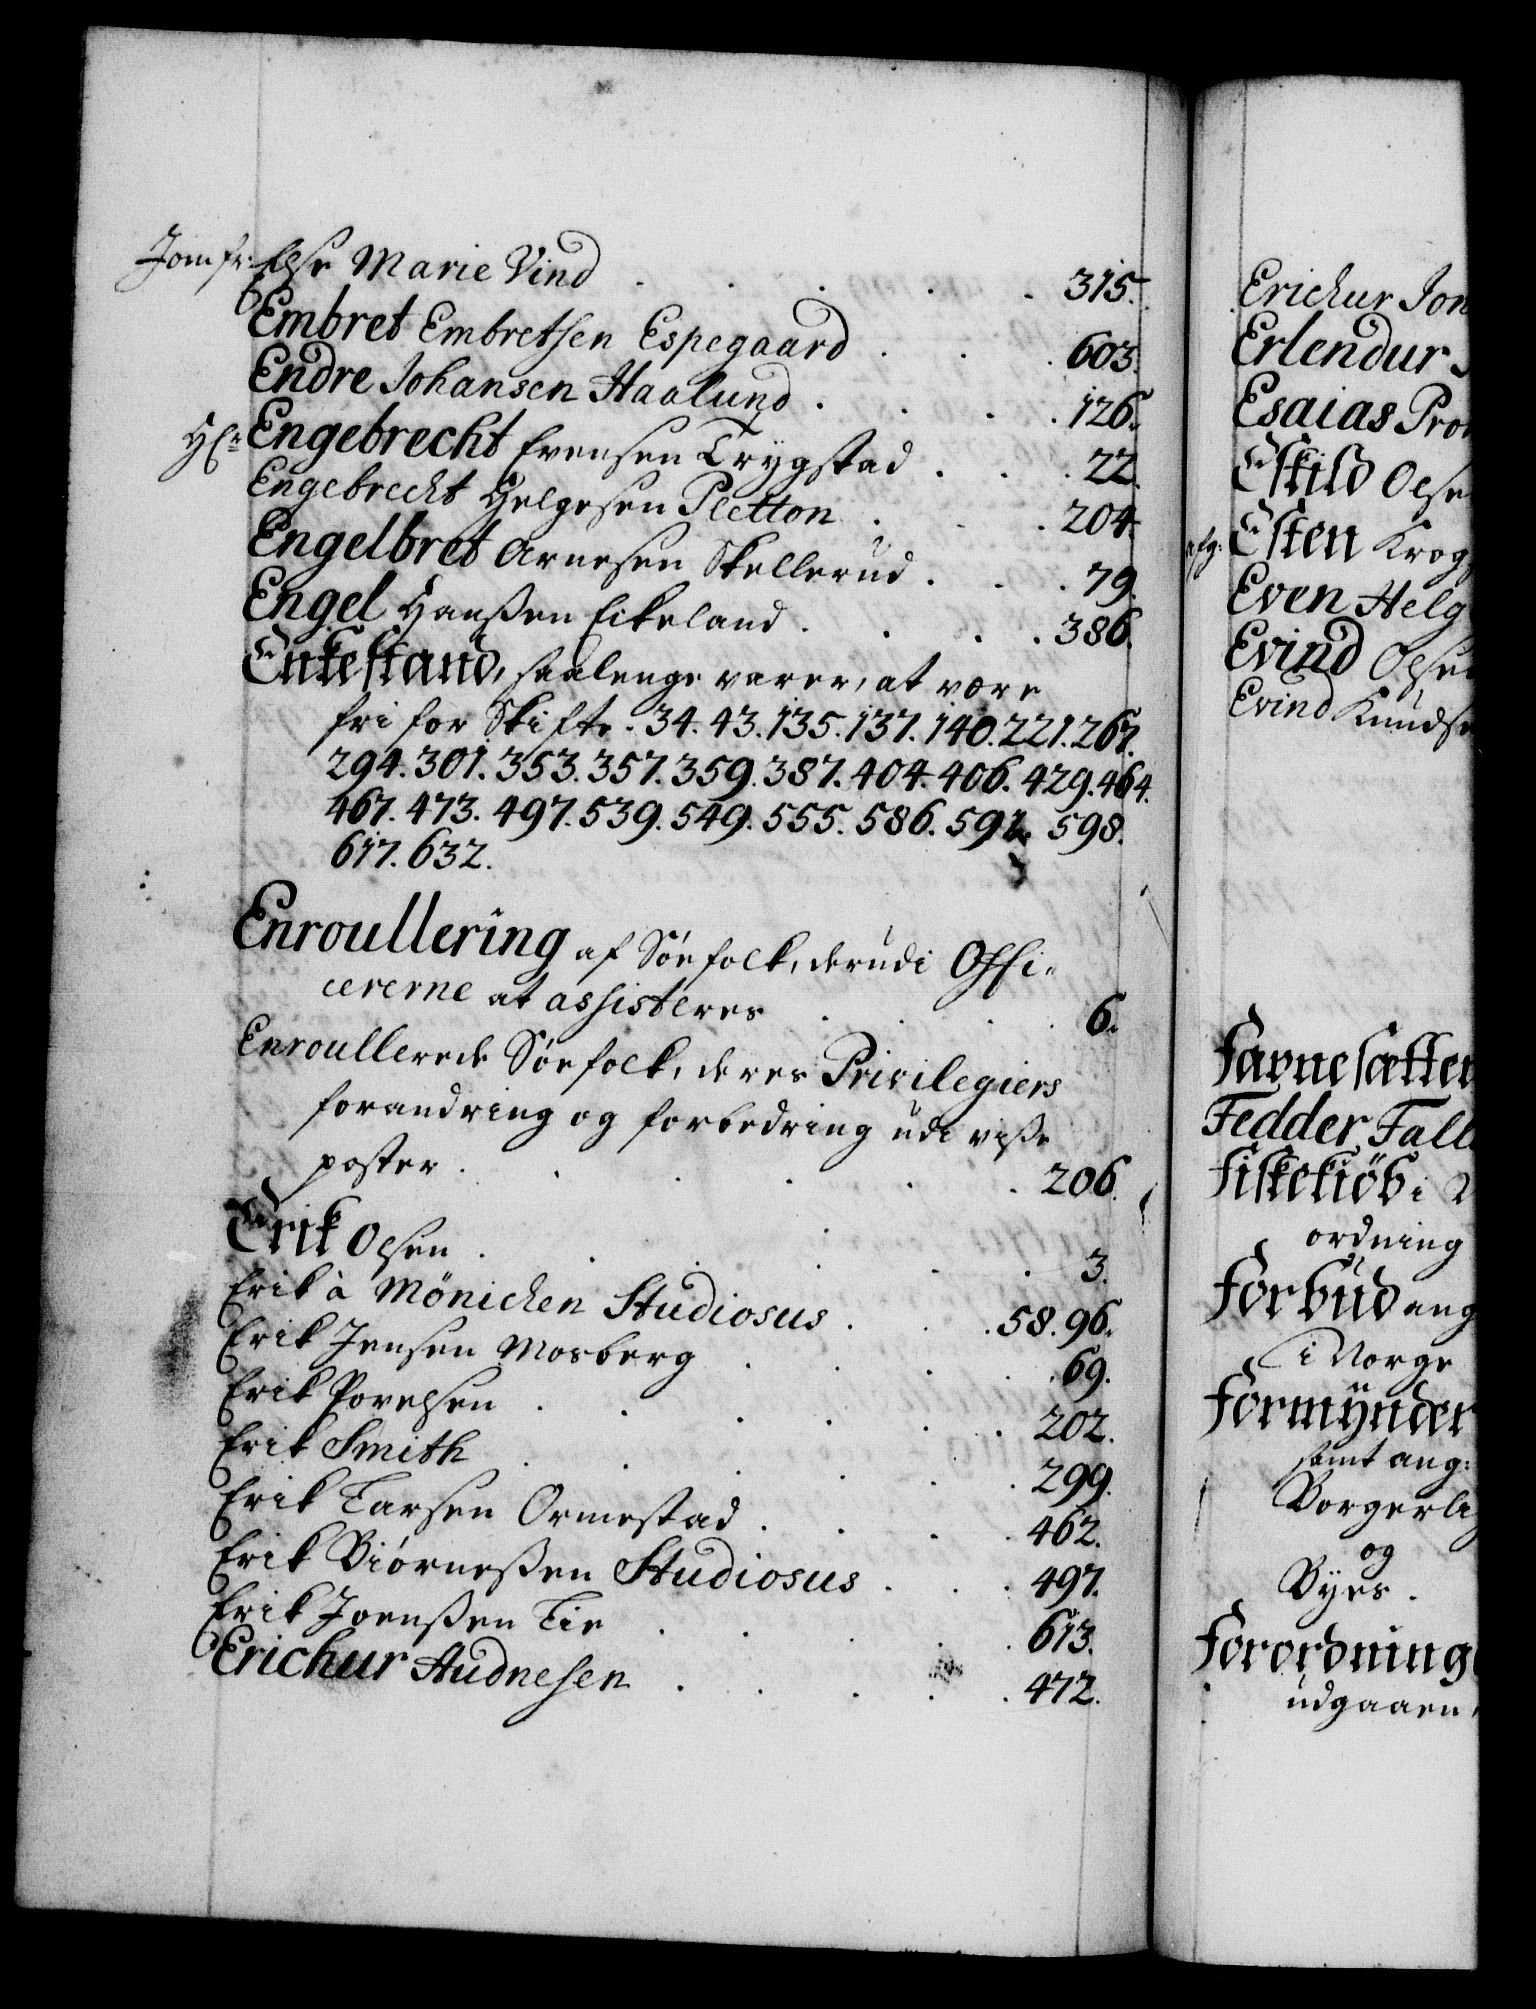 Jomfr: Else Marie Vind . . . . . 315.
Embret Embretsen Espegaard . . . 603.
Endre Johansen Haalund . . . . 126.
Hr: Engebrecht Evensen Trygstad . . . 22.
Engebrecht Helgesen Pletton . . . 204.
Engelbret Arnesen Skellerud . . . 79.
Engel Hanßen Eikeland . . . . 386.
Enkestand, saalenge varer, at være
fri for Skifte. 34. 43. 135. 137. 140. 221. 267.
294. 301. 353. 357. 359. 387. 404. 406. 429. 464.
467. 473. 497. 539. 549. 555. 586. 598.
617. 632.
Enroullering af Söefolk, derudi Offi-
cererne at assisteres . . . . 6.
Enroullerede Söefolk, deres Privilegiers
forandring og forbedring udi visse
poster . . . . . . 206.
Erik Olsen . . . . . . 3.
Erik à Mönichen Studiosus . . . 58. 96.
Erik Jensen Mosberg . . . . 69.
Erik Povelsen . . . . . 202.
Erik Smith . . . . . . 299.
Erik Larsen Ormestad . . . . 462.
Erik Biörneßen Studiosus . . . 497.
Erik Joenßen Lie . . . . . 613.
Erichur Audnesen . . . . . 472.
Erichur Jon
Erlendur
Esaias
Eskild Olse
Esten Krog
Even Helg
Evind Olse
Evind Knuds
Favnesætter
Fedder Fall
Fiskekiöb i
ordning
Forbud ang
i Norge
Formynder
samt ang:
Borgerli
og
Byes .
Forordning
udgaaen